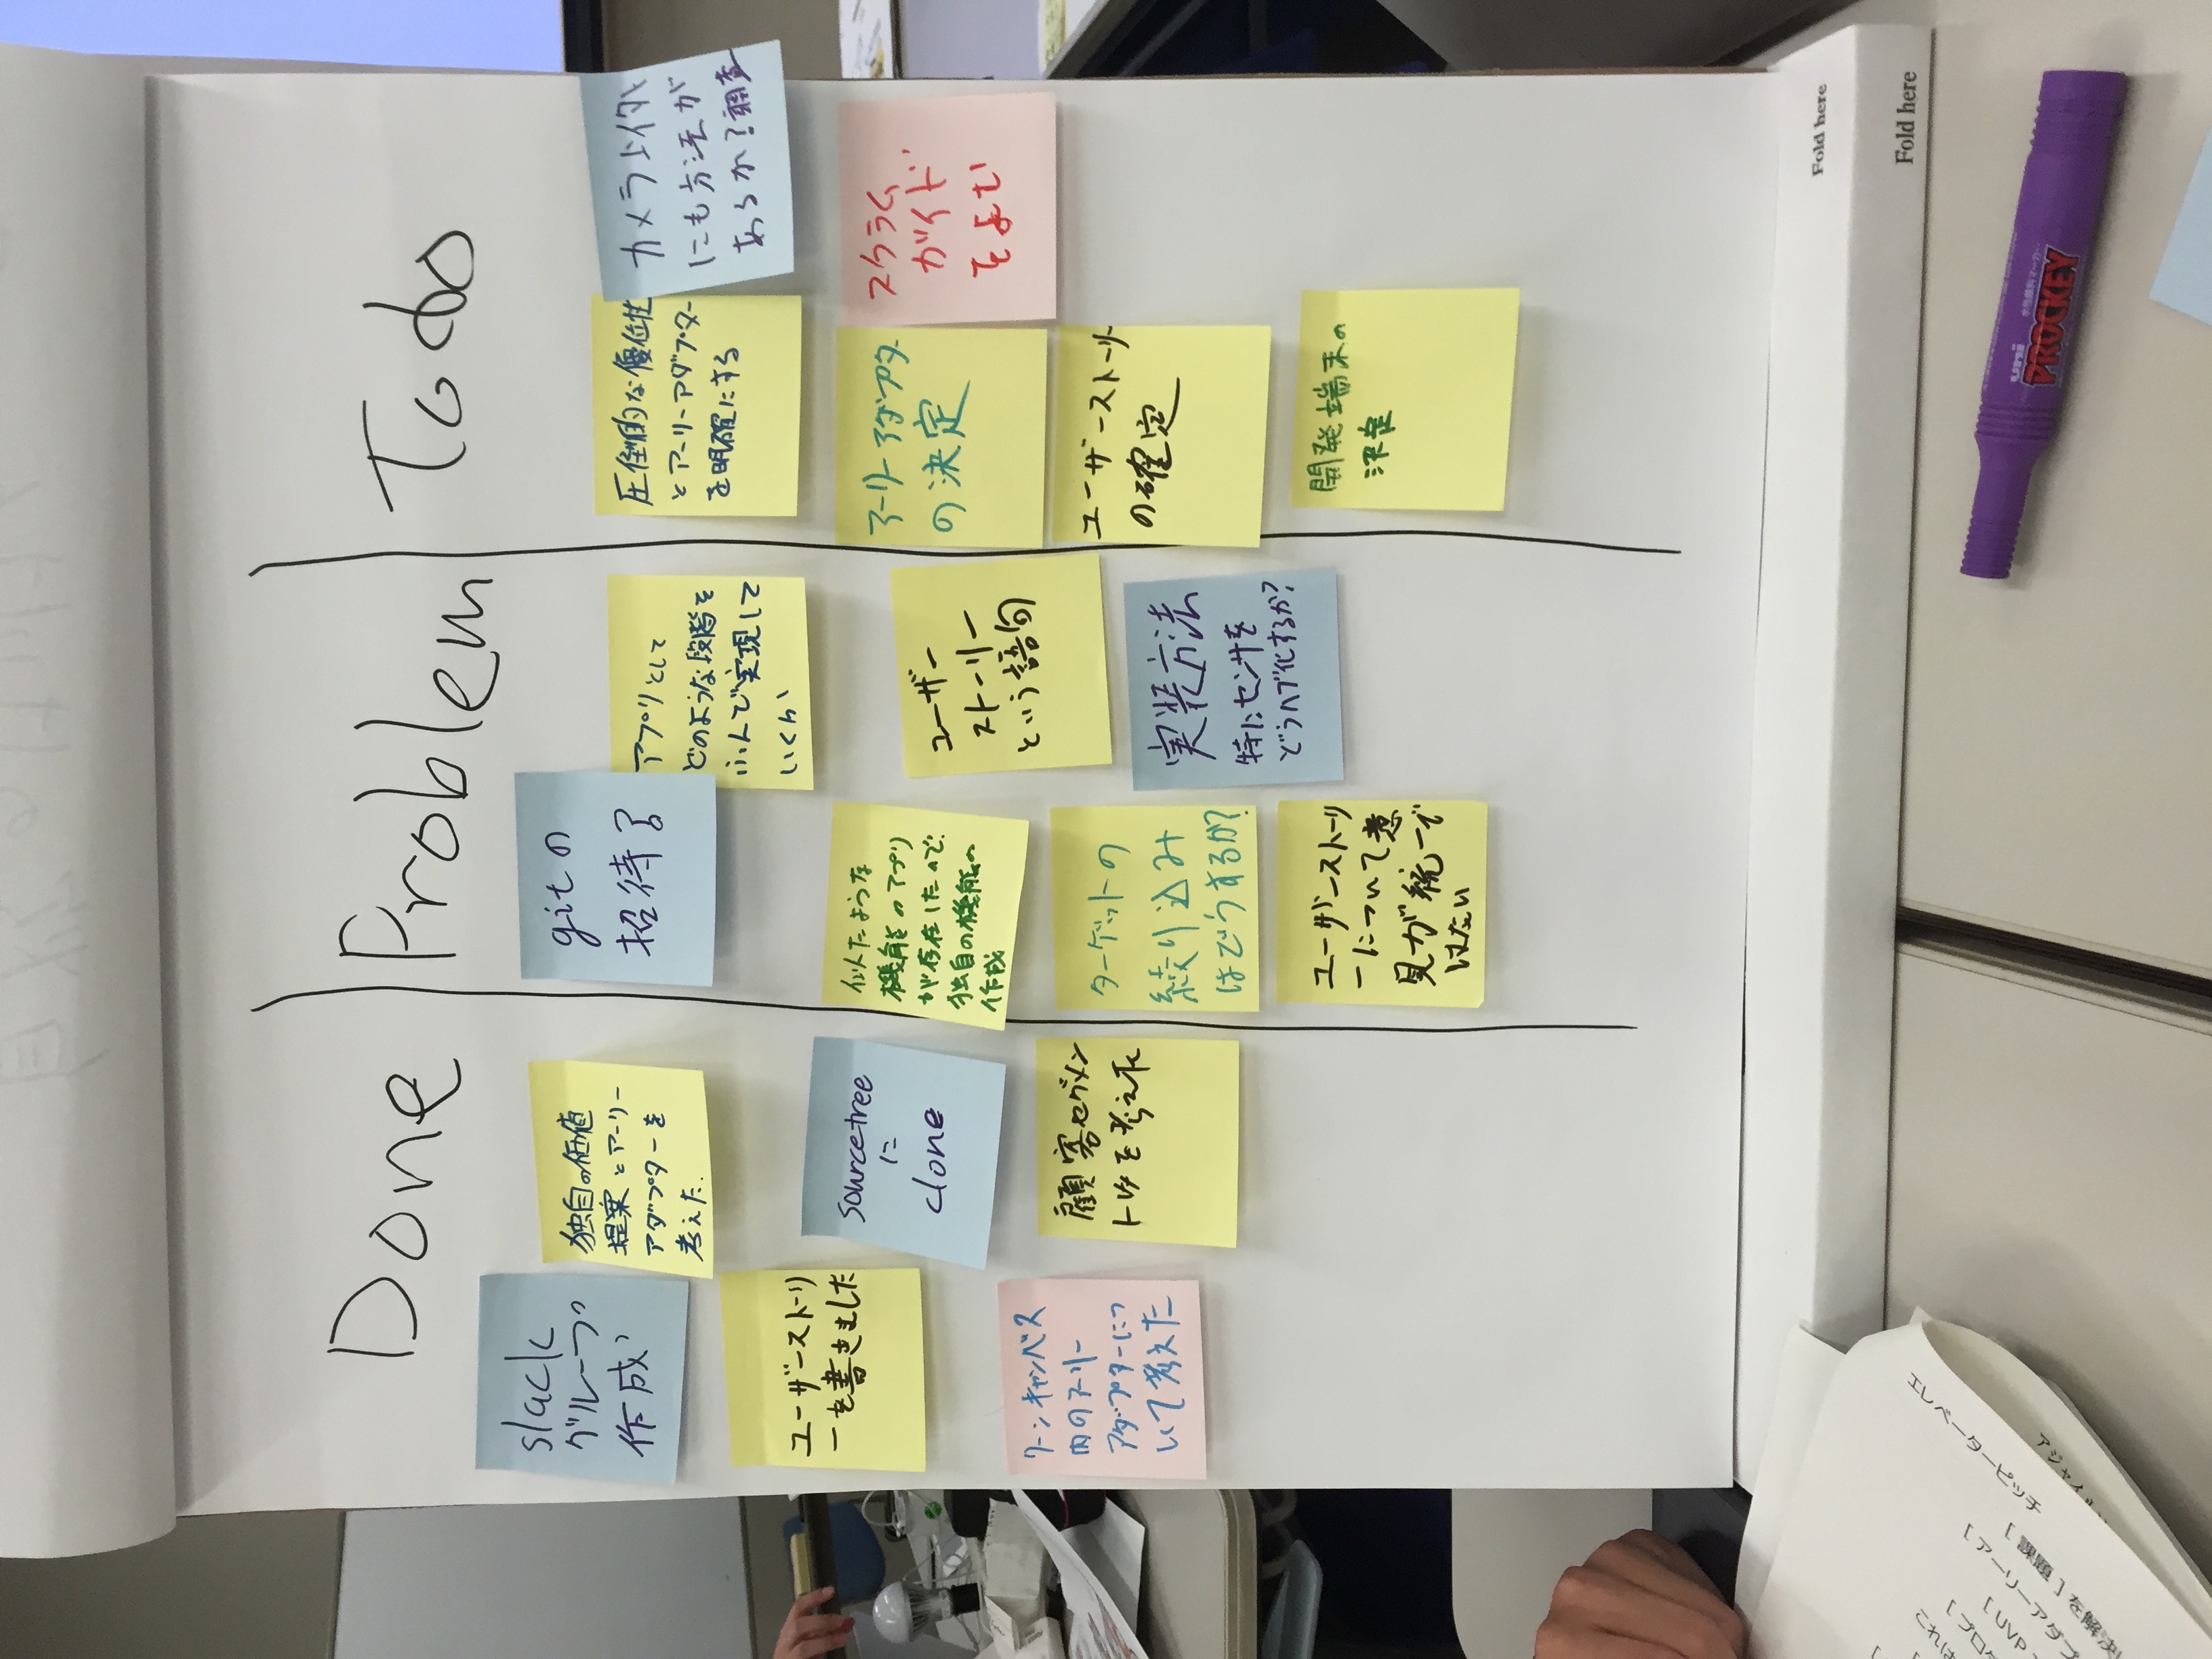 Done
slack
グループ
作成
独自の価値
提案とアーリー
アダプターを
考えた.
ユーザーストーリ
ーを書きました
sourcetree
に
clone
リーンキャンバス
内のアーリー
アダプターにつ
いて考えた
顧客セグメン
を考えた
Problem
gitの
招待
アプリとして
どのような段階を
ふんで実現して
いくか
似たような
機能のアプリ
が存在したので.
独自の機能の
作成
ユーザー
ストーリー
という語句
ターゲットの
絞り込み
はどうするか?
実装方法
特にセンサを
どうハブ化するか?
ユーザーストーリ
ーについて意
見が統一で
はない
Todo
圧倒的な優位性
とアーリーアダプター
を明確にする
カメラ以外
にも方法が
あるか?調査
アーリーアダプター
の決定
スクラム
ガイド
をよむ
ユーザーストーリー
の確定
開発端末の
決定
Fold here
Fold here
uni
水性顔料マーカー
PROCKEY
エレベーターピッチ
[アーリーアダプ
[課題]を解決
[UVP
これは